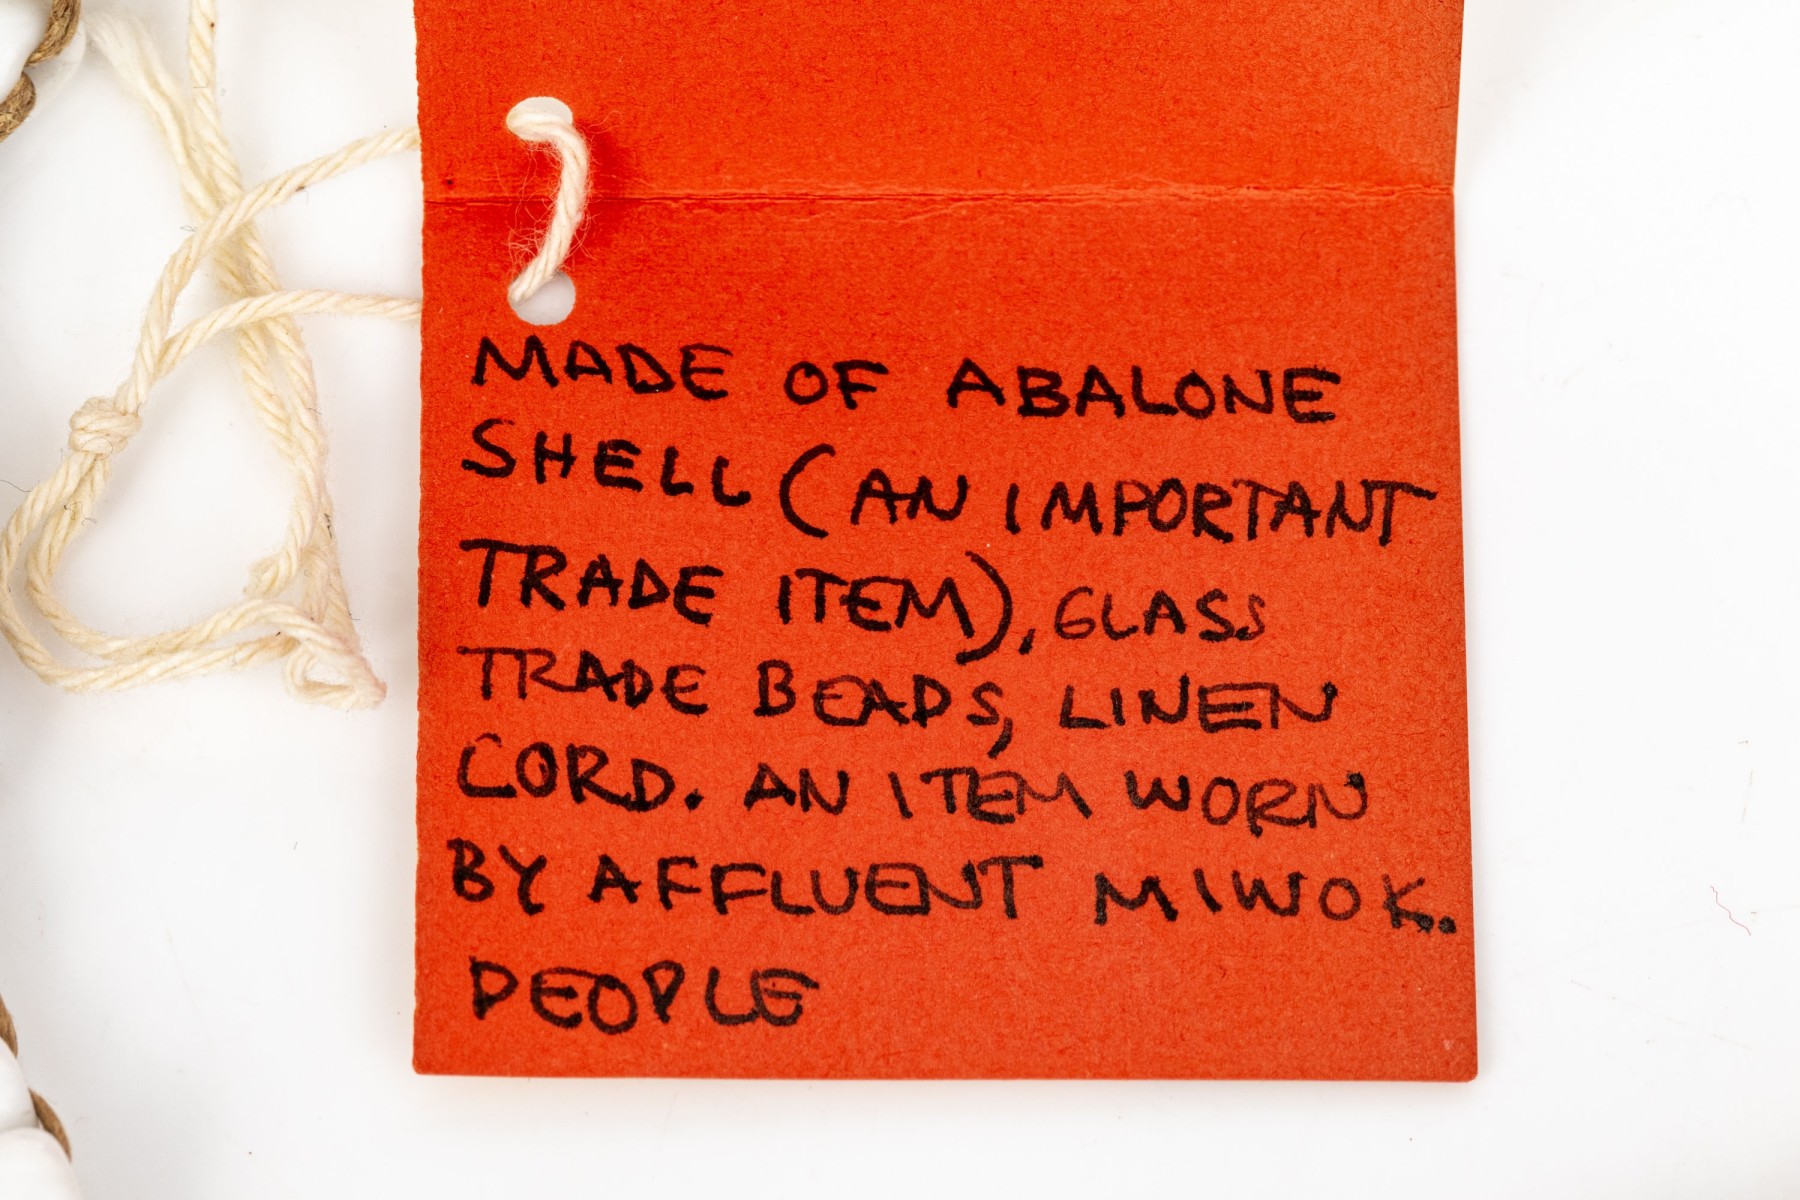 MADE OF ABALONE
SHELL (AN IMPORTANT
TRADE ITEM), GLASS
TRADE BEADS, LINEN
CORD. AN ITEM WORN
BY AFFLUENT MIWOK.
PEOPLE